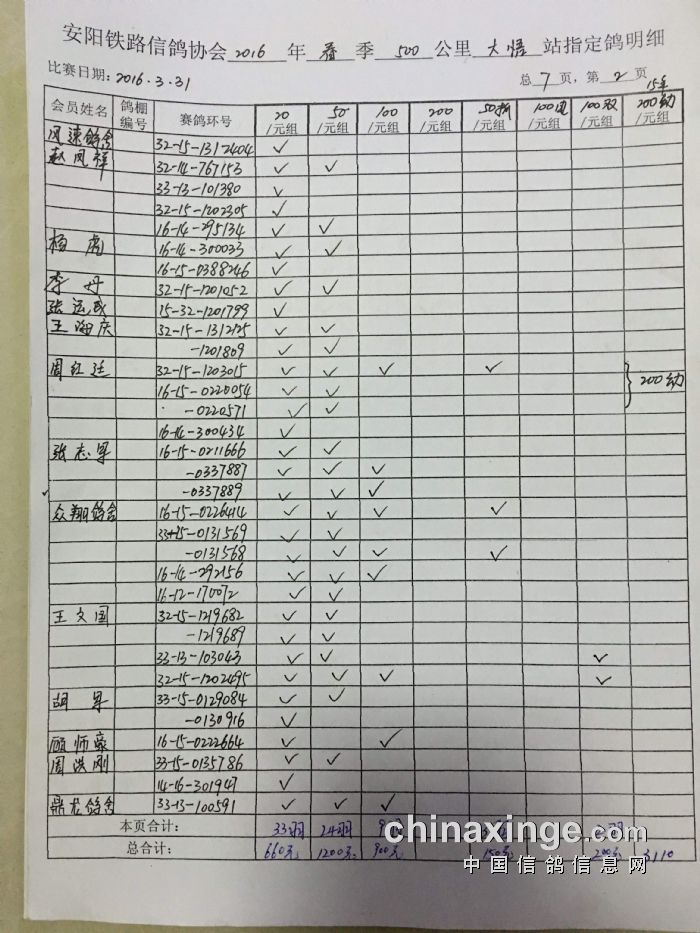 安阳铁路信鸽协会 2016 年 春 季 500 公里 大悟 站指定鸽明细
比赛日期：2016.3.31 总 7 页，第 2 页
会员姓名 鸽棚编号 赛鸽环号 20/元组 50/元组 100/元组 200/元组 50折/元组 100团/元组 100双/元组 15年200幼/元组
风速鸽舍 32-15-1312404 ✓
赵凤祥 32-14-767153 ✓ ✓
33-13-101380 ✓
32-15-1202305 ✓
16-14-295134 ✓ ✓
杨虎 16-14-300033 ✓ ✓
16-15-0388246 ✓
李丹 32-15-1201052 ✓ ✓
张运成 15-32-1201799 ✓
王海庆 32-15-1312125 ✓ ✓
-1201809 ✓ ✓
周红廷 32-15-1203015 ✓ ✓ ✓ ✓
16-15-0220054 ✓ ✓ } 200幼
-0220571 ✓ ✓
16-14-300434 ✓
张志军 16-15-0211666 ✓ ✓
-0337887 ✓ ✓ ✓
✓ -0337889 ✓ ✓ ✓
众翔鸽舍 16-15-0226414 ✓ ✓ ✓ ✓
33-15-0131569 ✓ ✓
-0131568 ✓ ✓ ✓ ✓
16-14-292156 ✓ ✓ ✓
16-12-170072 ✓ ✓
王文国 32-15-1219682 ✓ ✓
-1219689 ✓ ✓
33-13-103043 ✓ ✓ ✓
32-15-1202495 ✓ ✓ ✓ ✓
胡军 33-15-0129084 ✓ ✓
-0130916 ✓
顾师豪 16-15-0222664 ✓ ✓
周洪刚 33-15-0135786 ✓ ✓
14-16-301947 ✓
鼎龙鸽舍 33-13-100591 ✓ ✓ ✓
本页合计： 33羽 24羽
总合计： 660元 1200元 900元 150元 200元 3110
chinaxinge.com
中国信鸽信息网